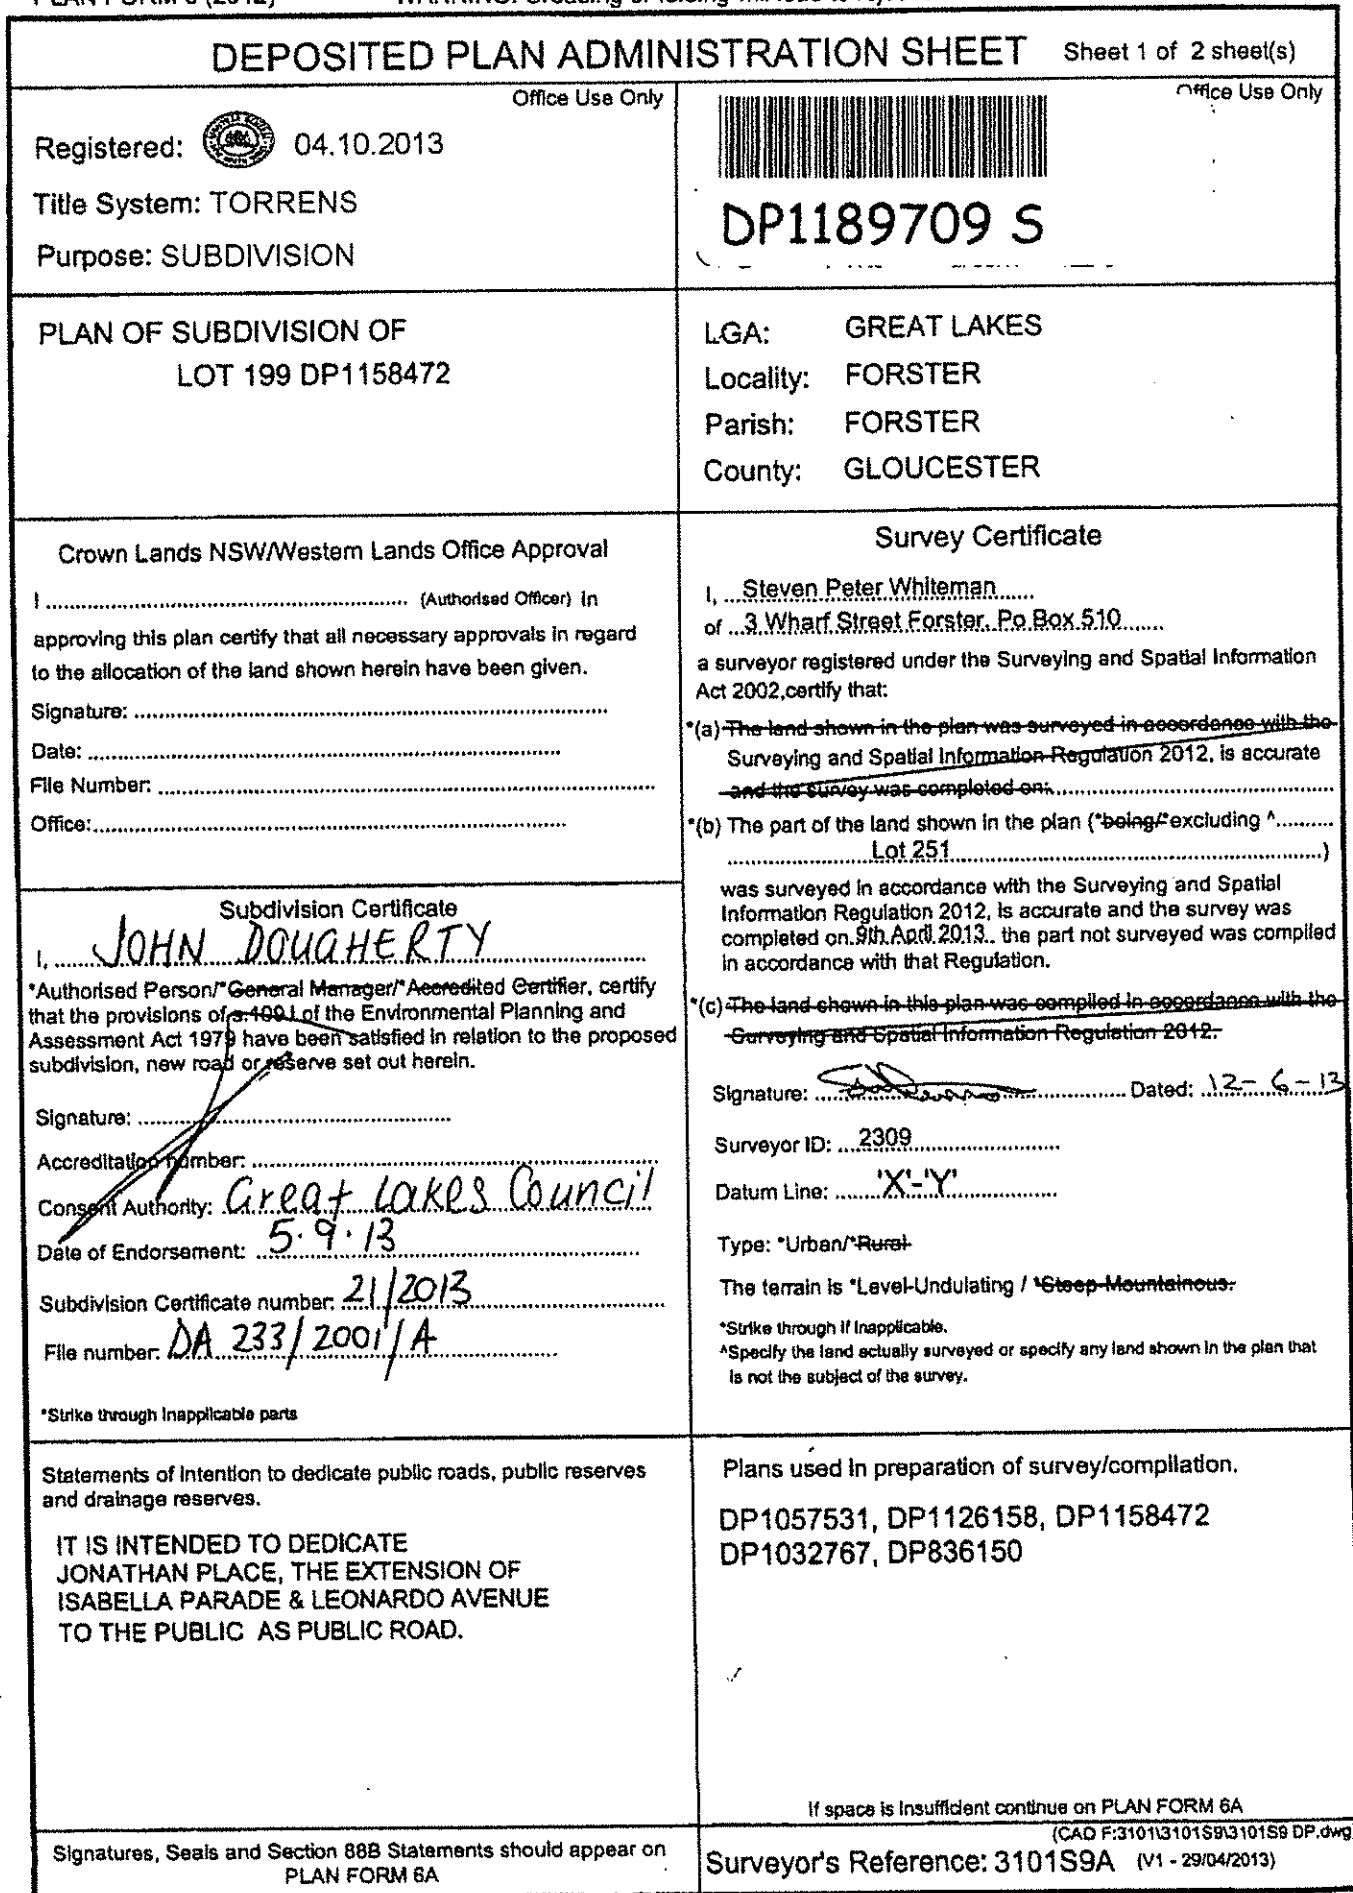 PLAN FORM 6 (2012)
DEPOSITED PLAN ADMINISTRATION SHEET Sheet 1 of 2 sheet(s)
Office Use Only
Registered: 04.10.2013
Title System: TORRENS
Purpose: SUBDIVISION
Office Use Only
DP1189709 S
PLAN OF SUBDIVISION OF
LOT 199 DP1158472
LGA: GREAT LAKES
Locality: FORSTER
Parish: FORSTER
County: GLOUCESTER
Crown Lands NSW/Western Lands Office Approval
I ........ (Authorised Officer) in
approving this plan certify that all necessary approvals in regard
to the allocation of the land shown herein have been given.
Signature: ........
Date: ........
File Number: ........
Office: ........
Subdivision Certificate
I, JOHN DOUGHERTY
*Authorised Person/*General Manager/*Accredited Certifier, certify
that the provisions of s.109J of the Environmental Planning and
Assessment Act 1979 have been satisfied in relation to the proposed
subdivision, new road or reserve set out herein.
Signature: ........
Accreditation number: ........
Consent Authority: Great Lakes Council
Date of Endorsement: 5.9.13
Subdivision Certificate number: 21/2013
File number: DA 233/2001/A
*Strike through inapplicable parts
Survey Certificate
I, Steven Peter Whiteman
of 3 Wharf Street Forster, Po Box 510
a surveyor registered under the Surveying and Spatial Information
Act 2002,certify that:
*(a) The land shown in the plan was surveyed in accordance with the
Surveying and Spatial Information Regulation 2012, is accurate
and the survey was completed on: ........
*(b) The part of the land shown in the plan (*being/*excluding ^........
Lot 251 ........)
was surveyed in accordance with the Surveying and Spatial
Information Regulation 2012, is accurate and the survey was
completed on 9th April 2013 the part not surveyed was compiled
in accordance with that Regulation.
*(c) The land shown in this plan was compiled in accordance with the
Surveying and Spatial Information Regulation 2012.
Signature: ........ Dated: 12-6-13
Surveyor ID: 2309
Datum Line: 'X'-'Y'
Type: *Urban/*Rural
The terrain is *Level-Undulating / *Steep-Mountainous.
*Strike through if inapplicable.
^Specify the land actually surveyed or specify any land shown in the plan that
is not the subject of the survey.
Statements of intention to dedicate public roads, public reserves
and drainage reserves.
IT IS INTENDED TO DEDICATE
JONATHAN PLACE, THE EXTENSION OF
ISABELLA PARADE & LEONARDO AVENUE
TO THE PUBLIC AS PUBLIC ROAD.
Plans used in preparation of survey/compilation.
DP1057531, DP1126158, DP1158472
DP1032767, DP836150
If space is insufficient continue on PLAN FORM 6A
Signatures, Seals and Section 88B Statements should appear on
PLAN FORM 6A
(CAD F:3101\3101S9\3101S9 DP.dwg
Surveyor's Reference: 3101S9A (V1 - 29/04/2013)